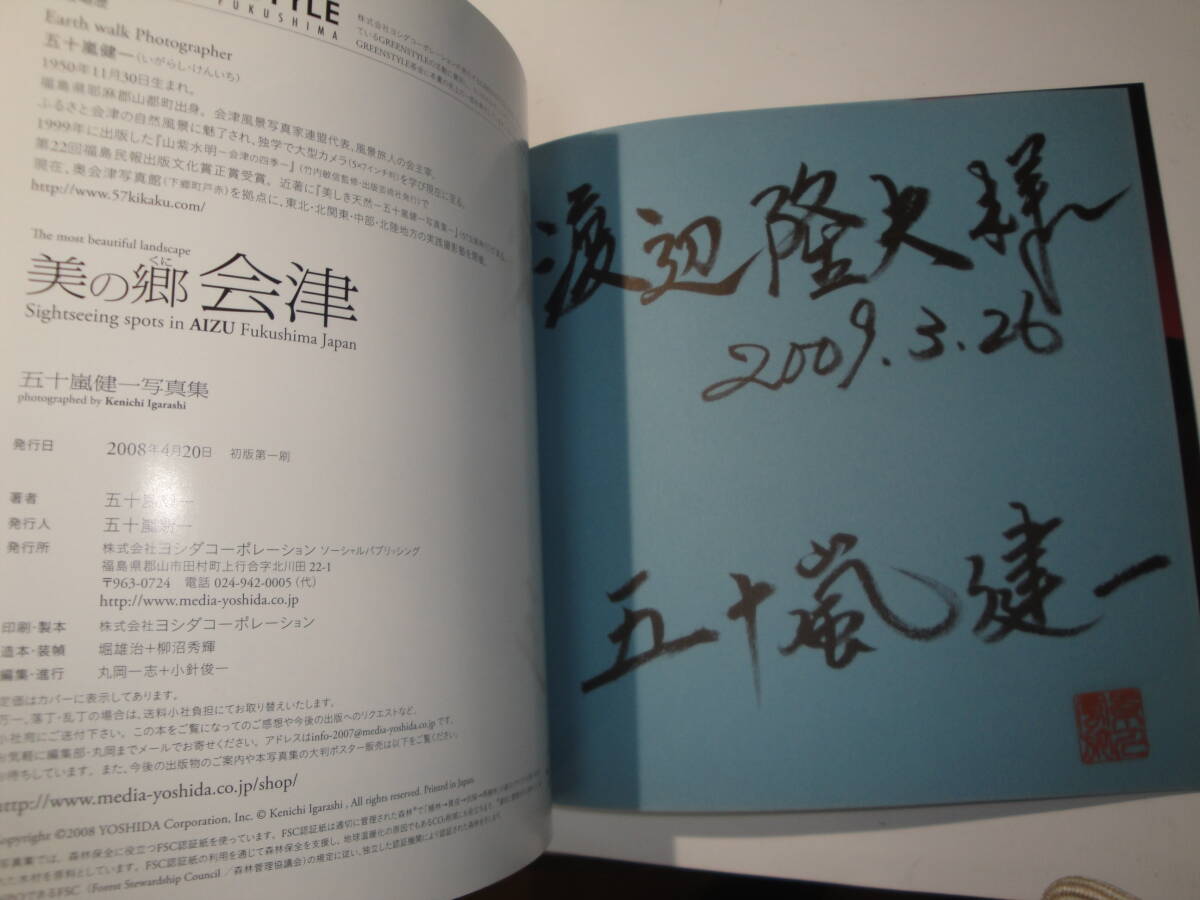 STYLE
FUKUSHIMA
Earth walk Photographer
五十嵐健一(いがらし・けんいち)
1950年11月30日生まれ。
福島県耶麻郡山都町出身。会津風景写真家連盟代表、風景旅人の会主宰。
ふるさと会津の自然風景に魅了され、独学で大型カメラ(5×7インチ判)を学び現在に至る。
1999年に出版した『山紫水明－会津の四季－』(竹内敏信監修・出版芸術社発行)で
第22回福島民報出版文化賞正賞受賞。近著に『美しき天然－五十嵐健一写真集－』
現在、奥会津写真館(下郷町戸赤)を拠点に、東北・北関東・中部・北陸地方の実践撮影塾を開催。
http://www.57kikaku.com/
The most beautiful landscape
美の郷 会津
くに
Sightseeing spots in AIZU Fukushima Japan
五十嵐健一写真集
photographed by Kenichi Igarashi
発行日 2008年4月20日 初版第一刷
著者 五十嵐健一
発行人 五十嵐
発行所 株式会社ヨシダコーポレーション ソーシャルパブリッシング
福島県郡山市田村町上行合字北川田22-1
〒963-0724 電話 024-942-0005(代)
http://www.media-yoshida.co.jp
印刷・製本 株式会社ヨシダコーポレーション
造本・装幀 堀雄治＋柳沼秀輝
編集・進行 丸岡一志＋小針俊一
定価はカバーに表示してあります。
万一、落丁・乱丁の場合は、送料小社負担にてお取り替えいたします。
小社宛にご送付下さい。この本をご覧になってのご感想や今後の出版へのリクエストなど、
お気軽に編集部・丸岡までメールでお寄せください。アドレスはinfo-2007@media-yoshida.co.jpです。
お待ちしています。また、今後の出版物のご案内や本写真集の大判ポスター販売は以下をご覧ください。
http://www.media-yoshida.co.jp/shop/
Copyright ©2008 YOSHIDA Corporation, Inc. © Kenichi Igarashi , All rights reserved. Printed in Japan.
写真集では、森林保全に役立つFSC認証紙を使っています。FSC認証紙は適切に管理された森林で
た木材を原料としています。FSC認証紙の利用を通じて森林保全を支援し、地球温暖化の原因でもあるCO2削減に
であるFSC (Forest Stewardship Council／森林管理協議会)の規定に従い、独立した認証機関により認証された森林
渡辺隆史様
2009.3.26
五十嵐健一